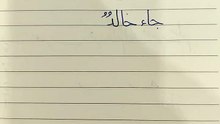 جاء خالدٌ